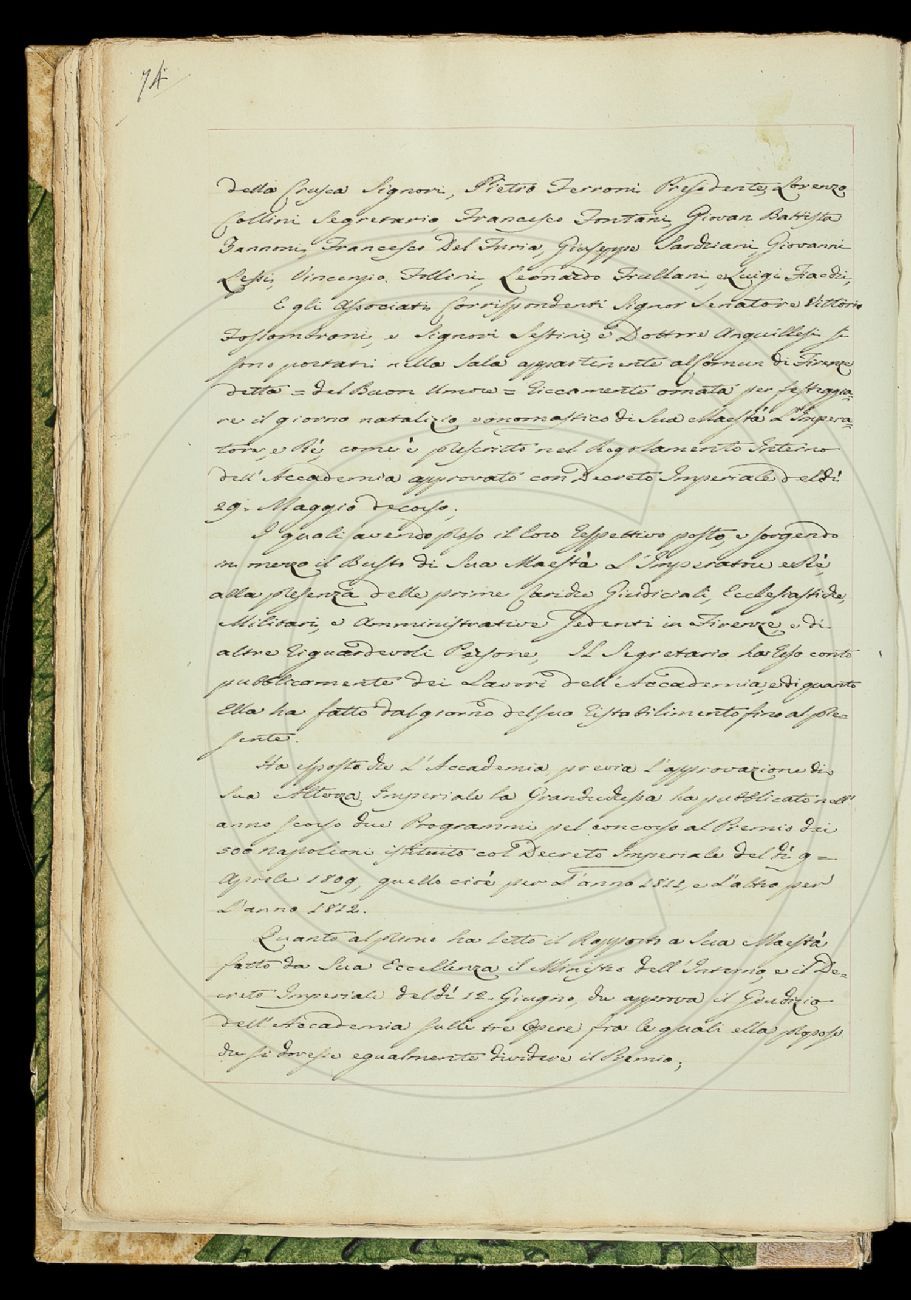 74
della Crusca Signori, Pietro Ferroni Presidente, Lorenzo
Collini Segretario, Francesco Fontani, Giovan Battista
Zannoni, Francesco Del Furia, Giuseppe Sarchiani, Giovanni
Lessi, Vincenzio Follini, Leonardo Frullani, e Luigi Fiacchi,
E gli Associati Corrispondenti Signor Senatore Vittorio
Fossombroni, e Signori Sestini, e Dottore Anguillesi si
sono portati nella Sala appartenente al Comun di Firenze
detta = del Buon Umore = riccamente ornata per festeggia=
re il giorno natalizio e onomastico di Sua Maestà L'Impera=
tore, e Rè, come è prescritto nel Regolamento Interno
dell'Accademia approvato con Decreto Imperiale del dì
29. Maggio decorso.
I quali avendo preso il loro respettivo posto, e sorgendo
in mezzo il Busto di Sua Maestà L'Imperatore e Rè,
alla presenza delle prime Cariche Giudiciali, Ecclesiastiche,
Militari, e Amministrative sedenti in Firenze, e di
altre riguardevoli Persone, Il Segretario ha reso conto
pubblicamente dei Lavori dell'Accademia, e di quanto
Ella ha fatto dal giorno del suo ristabilimento fino al pre=
sente.
Ha esposto che L'Accademia previa l'approvazione di
Sua Altezza Imperiale la Granduchessa ha pubblicato nell'
anno scorso due Programmi pel concorso al Premio dei
500 napoleoni istituito col Decreto Imperiale del dì 9=
Aprile 1809, quello cioè per L'anno 1811, e L'altro per
L'anno 1812.
Quanto al primo ha letto il Rapporto a Sua Maestà
fatto da Sua Eccellenza il Ministro dell'Interno, e il De=
creto Imperiale del dì 12. Giugno, che approva il Giudizio
dell'Accademia sulle tre Opere fra le quali ella propose
che si dovesse egualmente dividere il Premio;